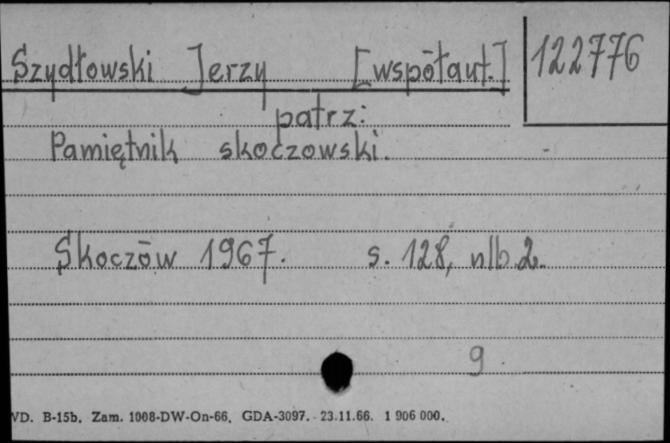 Szydłowski Jerzy [współaut.] 122776
patrz:
Pamiętnik skoczowski.
Skoczów 1967. s. 128, nlb. 2.
9
WD. B-15b. Zam. 1008-DW-On-66. GDA-3097. 23.11.66. 1 906 000.